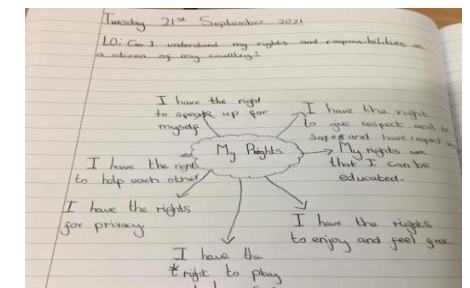 Tuesday 21st September 2021
LO: Can I understand my rights and responsibilities as
a citizen of my country?
I have the right
to speak up for
myself
I have the right
to give respect and be
safe and have respect
My Rights
My rights are
that I can be
educated.
I have the right
to help each other
I have the rights
for privacy
I have the rights
to enjoy and feel
I have the
*right to play